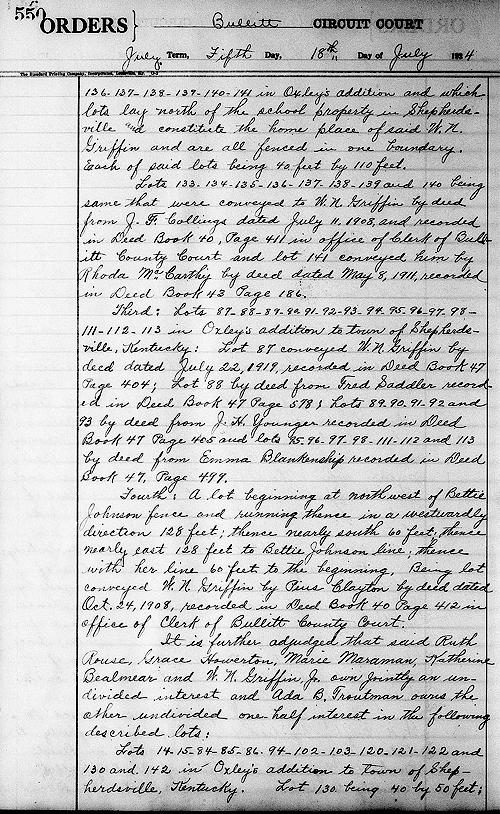 550
ORDERS } Bullitt CIRCUIT COURT
July Term, Fifth Day, 18th Day of July 1924
The Standard Printing Company, Incorporated, Louisville, Ky.
136-137-138-139-140-141 in Oxley's addition and which
lots lay north of the school property in Shepherds-
ville and constitute the home place of said W. N.
Griffin and are all fenced in one boundary.
Each of said lots being 40 feet by 110 feet.
Lots 133-134-135-136-137-138-139 and 140 being
same that were conveyed to W. N. Griffin by deed
from J. F. Collings dated July 11, 1903, and recorded
in Deed Book 40, Page 411 in office of Clerk of Bull-
itt County Court and lot 141 conveyed him by
Rhoda McCarthy by deed dated May 8, 1911, recorded
in Deed Book 43 Page 186.
Third: Lots 87-88-89-90-91-92-93-94-95-96-97-98-
111-112-113 in Oxley's addition to town of Shepherds-
ville, Kentucky: Lot 87 conveyed W. N. Griffin by
deed dated July 22, 1919, recorded in Deed Book 47
Page 404; Lot 88 by deed from Fred Saddler record-
ed in Deed Book 47 Page 578; Lots 89-90-91-92 and
93 by deed from J. H. Younger recorded in Deed
Book 47 Page 405 and lots 95-96-97-98-111-112 and 113
by deed from Emma Blankenship recorded in Deed
Book 47, Page 499.
Fourth: A lot beginning at northwest of Bettie
Johnson fence and running thence in a westwardly
direction 128 feet; thence nearly south 60 feet, thence
nearly east 128 feet to Bettie Johnson line; thence
with her line 60 feet to the beginning. Being lot
conveyed W. N. Griffin by Pius Clayton by deed dated
Oct. 24, 1908, recorded in Deed Book 40 Page 412 in
office of Clerk of Bullitt County Court.
It is further adjudged that said Ruth
Rouse, Grace Howerton, Marie Maraman, Katherine
Bealmear and W. N. Griffin, Jr. own jointly an un-
divided interest and Ada B. Troutman owns the
other undivided one half interest in the following
described lots:
Lots 14-15-84-85-86-94-102-103-120-121-122 and
130 and 142 in Oxley's addition to town of Shep-
herdsville, Kentucky. Lot 130 being 40 by 50 feet;